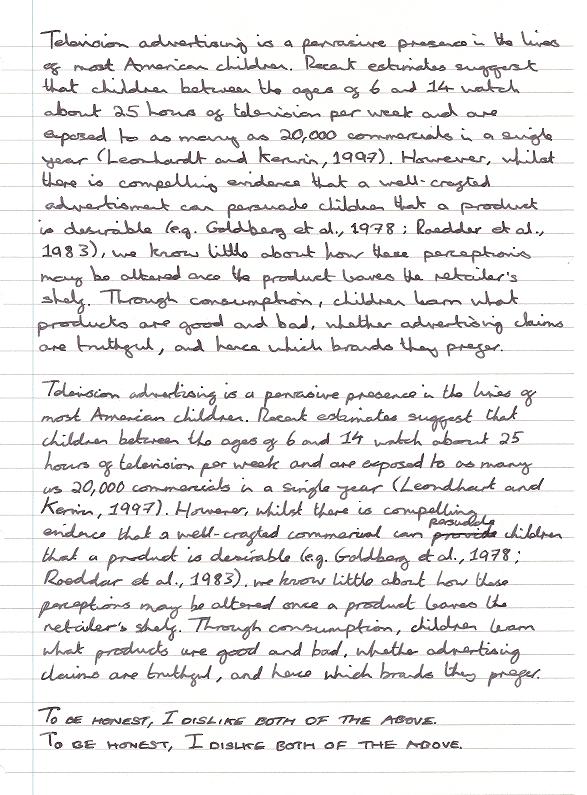 Television advertising is a pervasive presence in the lives
of most American children. Recent estimates suggest
that children between the ages of 6 and 14 watch
about 25 hours of television per week and are
exposed to as many as 20,000 commercials in a single
year (Leonhardt and Kerwin, 1997). However, whilst
there is compelling evidence that a well-crafted
advertisment can persuade children that a product
is desirable (e.g. Goldberg et al., 1978; Roedder et al.,
1983), we know little about how these perceptions
may be altered once the product leaves the retailer's
shelf. Through consumption, children learn what
products are good and bad, whether advertising claims
are truthful, and hence which brands they prefer.
Television advertising is a pervasive presence in the lives of
most American children. Recent estimates suggest that
children between the ages of 6 and 14 watch about 25
hours of television per week and are exposed to as many
as 20,000 commercials in a single year (Leondhart and
Kerwin, 1997). However, whilst there is compelling
evidence that a well-crafted commercial can provide persuade children
that a product is desirable (e.g. Goldberg et al., 1978;
Roeddar et al., 1983), we know little about how these
perceptions may be altered once a product leaves the
retailer's shelf. Through consumption, children learn
what products are good and bad, whether advertising
claims are truthful, and hence which brands they prefer.
TO BE HONEST, I DISLIKE BOTH OF THE ABOVE.
TO BE HONEST, I DISLIKE BOTH OF THE ABOVE.